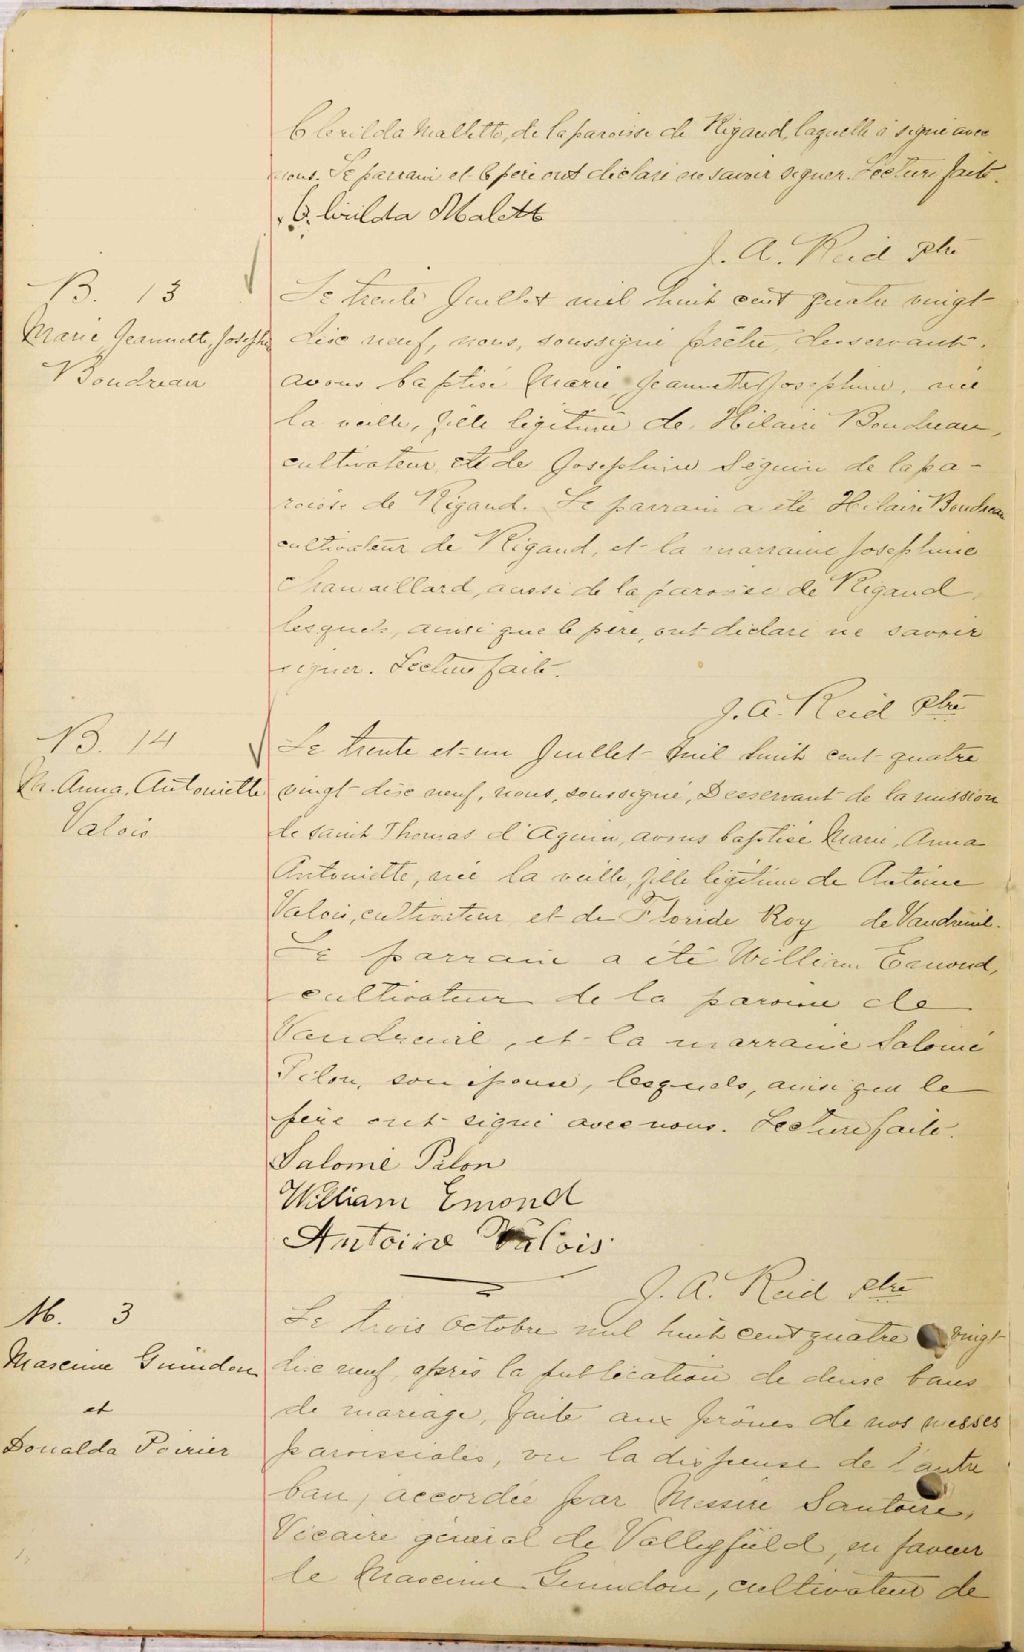 Clerilda Mallette, de la paroisse de Rigaud, laquelle a signé avec
nous. Le parrain et le père ont déclaré ne savoir signer. Lecture faite.
Clerilda Malette
J. A. Reid ptre
B. 13
Marie Jeannette Josephine
Boudreau
Le trente Juillet mil huit cent quatre vingt
dix neuf, nous, soussigné prêtre, desservant,
avons baptisé Marie, Jeannette Josephine, née
la veille, fille légitime de Hilaire Boudreau,
cultivateur et de Josephine Séguin de la pa-
roisse de Rigaud. Le parrain a été Hilaire Boudreau
cultivateur de Rigaud, et la marraine Josephine
aussi de la paroisse de Rigaud,
lesquels, ainsi que le père, ont déclaré ne savoir
signer. Lecture faite.
J. A. Reid ptre
B. 14
Ma. Anna. Antoniette
Valois
Le trente et-un Juillet mil huit cent quatre
vingt-dix neuf, nous, soussigné, Desservant de la mission
de saint Thomas d'Aquin, avons baptisé Marie, Anna
Antoniette, née la veille, fille légitime de Antoine
Valois, cultivateur et de Floride Roy de Vaudreuil.
Le parrain a été William Emond,
cultivateur de la paroisse de
Vaudreuil, et la marraine Salomé
Pilon, son épouse, lesquels, ainsi que le
père ont signé avec nous. Lecture faite.
Salomé Pilon
William Emond
Antoine Valois
J. A. Reid ptre
M. 3
Maxime Guindon
et
Donalda Poirier
Le trois Octobre mil huit cent quatre vingt
dix neuf, après la publication de deux bans
de mariage, faite aux prônes de nos messes
paroissiales, vu la dispense de l'autre
ban, accordée par Messire Santoire,
Vicaire général de Valleyfield, en faveur
de Maxime Guindon, cultivateur de